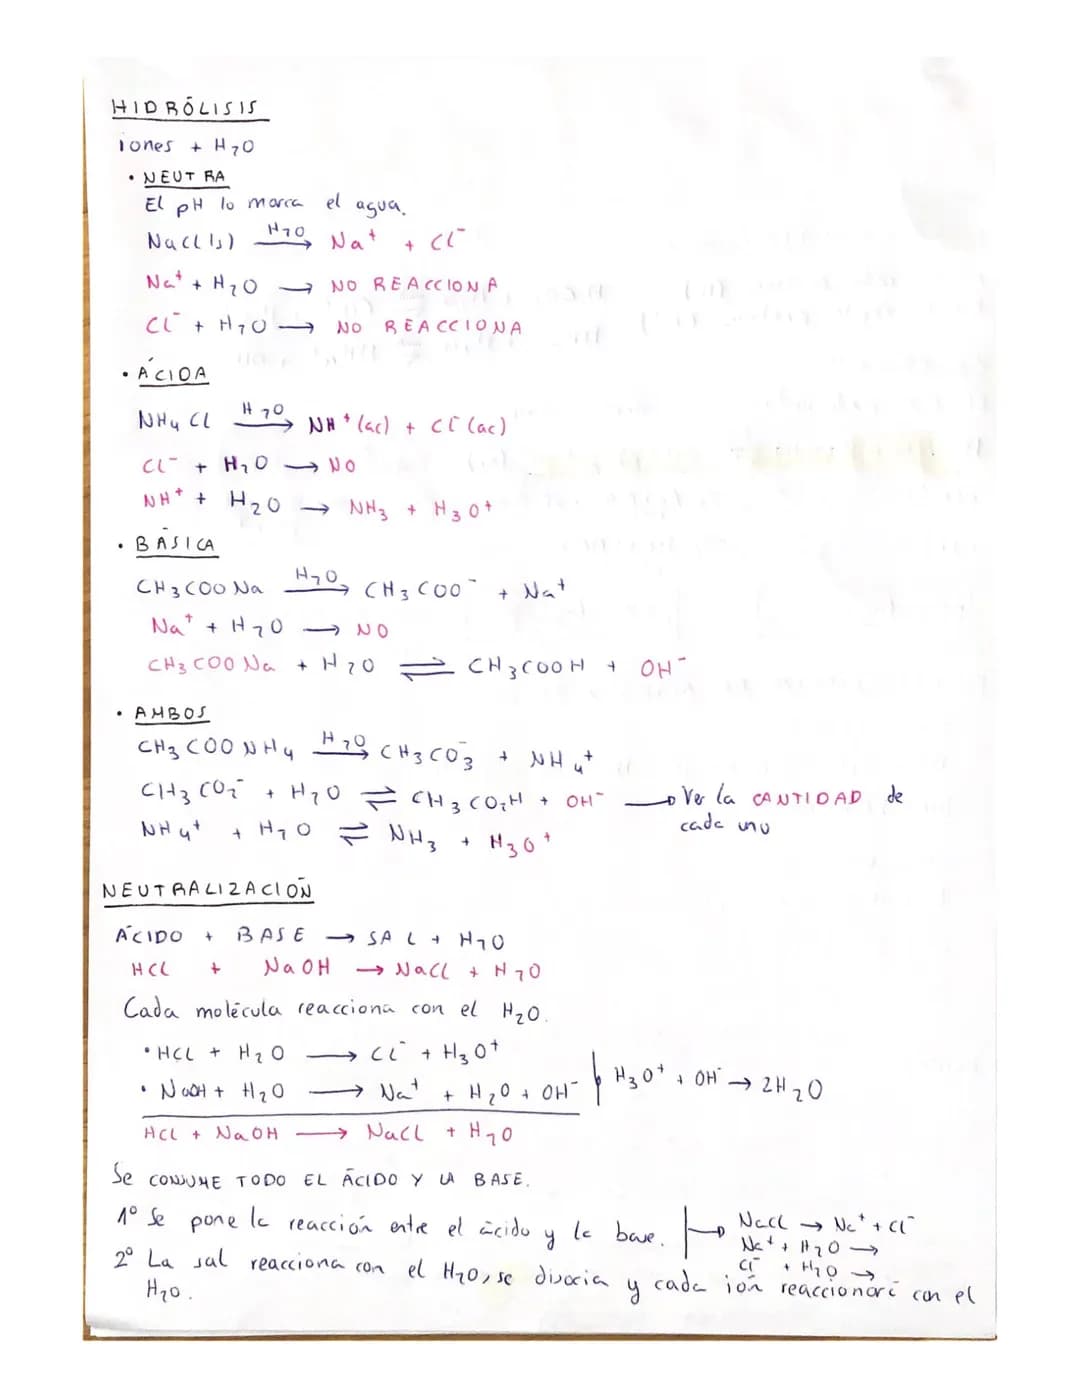 HIDRÓLISIS
iones + H2O
• NEUTRA
El pH lo marca el agua.
NaCl(s) —H2O→ Na+ + Cl-
Na+ + H2O → NO REACCIONA
Cl- + H2O → NO REACCIONA
• ÁCIDA
NH4Cl —H2O→ NH+(ac) + Cl-(ac)
Cl- + H2O → NO
NH+ + H2O → NH3 + H3O+
• BÁSICA
CH3COONa —H2O→ CH3COO- + Na+
Na+ + H2O → NO
CH3COONa + H2O ⇌ CH3COOH + OH-
• AMBOS
CH3COONH4 —H2O→ CH3CO3- + NH4+
CH3CO2- + H2O ⇌ CH3CO2H + OH- → Ver la CANTIDAD de
cada uno
NH4+ + H2O ⇌ NH3 + H3O+
NEUTRALIZACIÓN
ÁCIDO + BASE → SAL + H2O
HCl + NaOH → NaCl + H2O
Cada molécula reacciona con el H2O.
• HCl + H2O → Cl- + H3O+
• NaOH + H2O → Na+ + H2O + OH-
H3O+ + OH- → 2H2O
HCl + NaOH → NaCl + H2O
Se CONSUME TODO EL ÁCIDO Y LA BASE.
1º Se pone la reacción entre el ácido y la base.
NaCl → Na+ + Cl-
Na+ + H2O →
Cl- + H2O →
2º La sal reacciona con el H2O, se disocia y cada ión reaccionará con el
H2O.